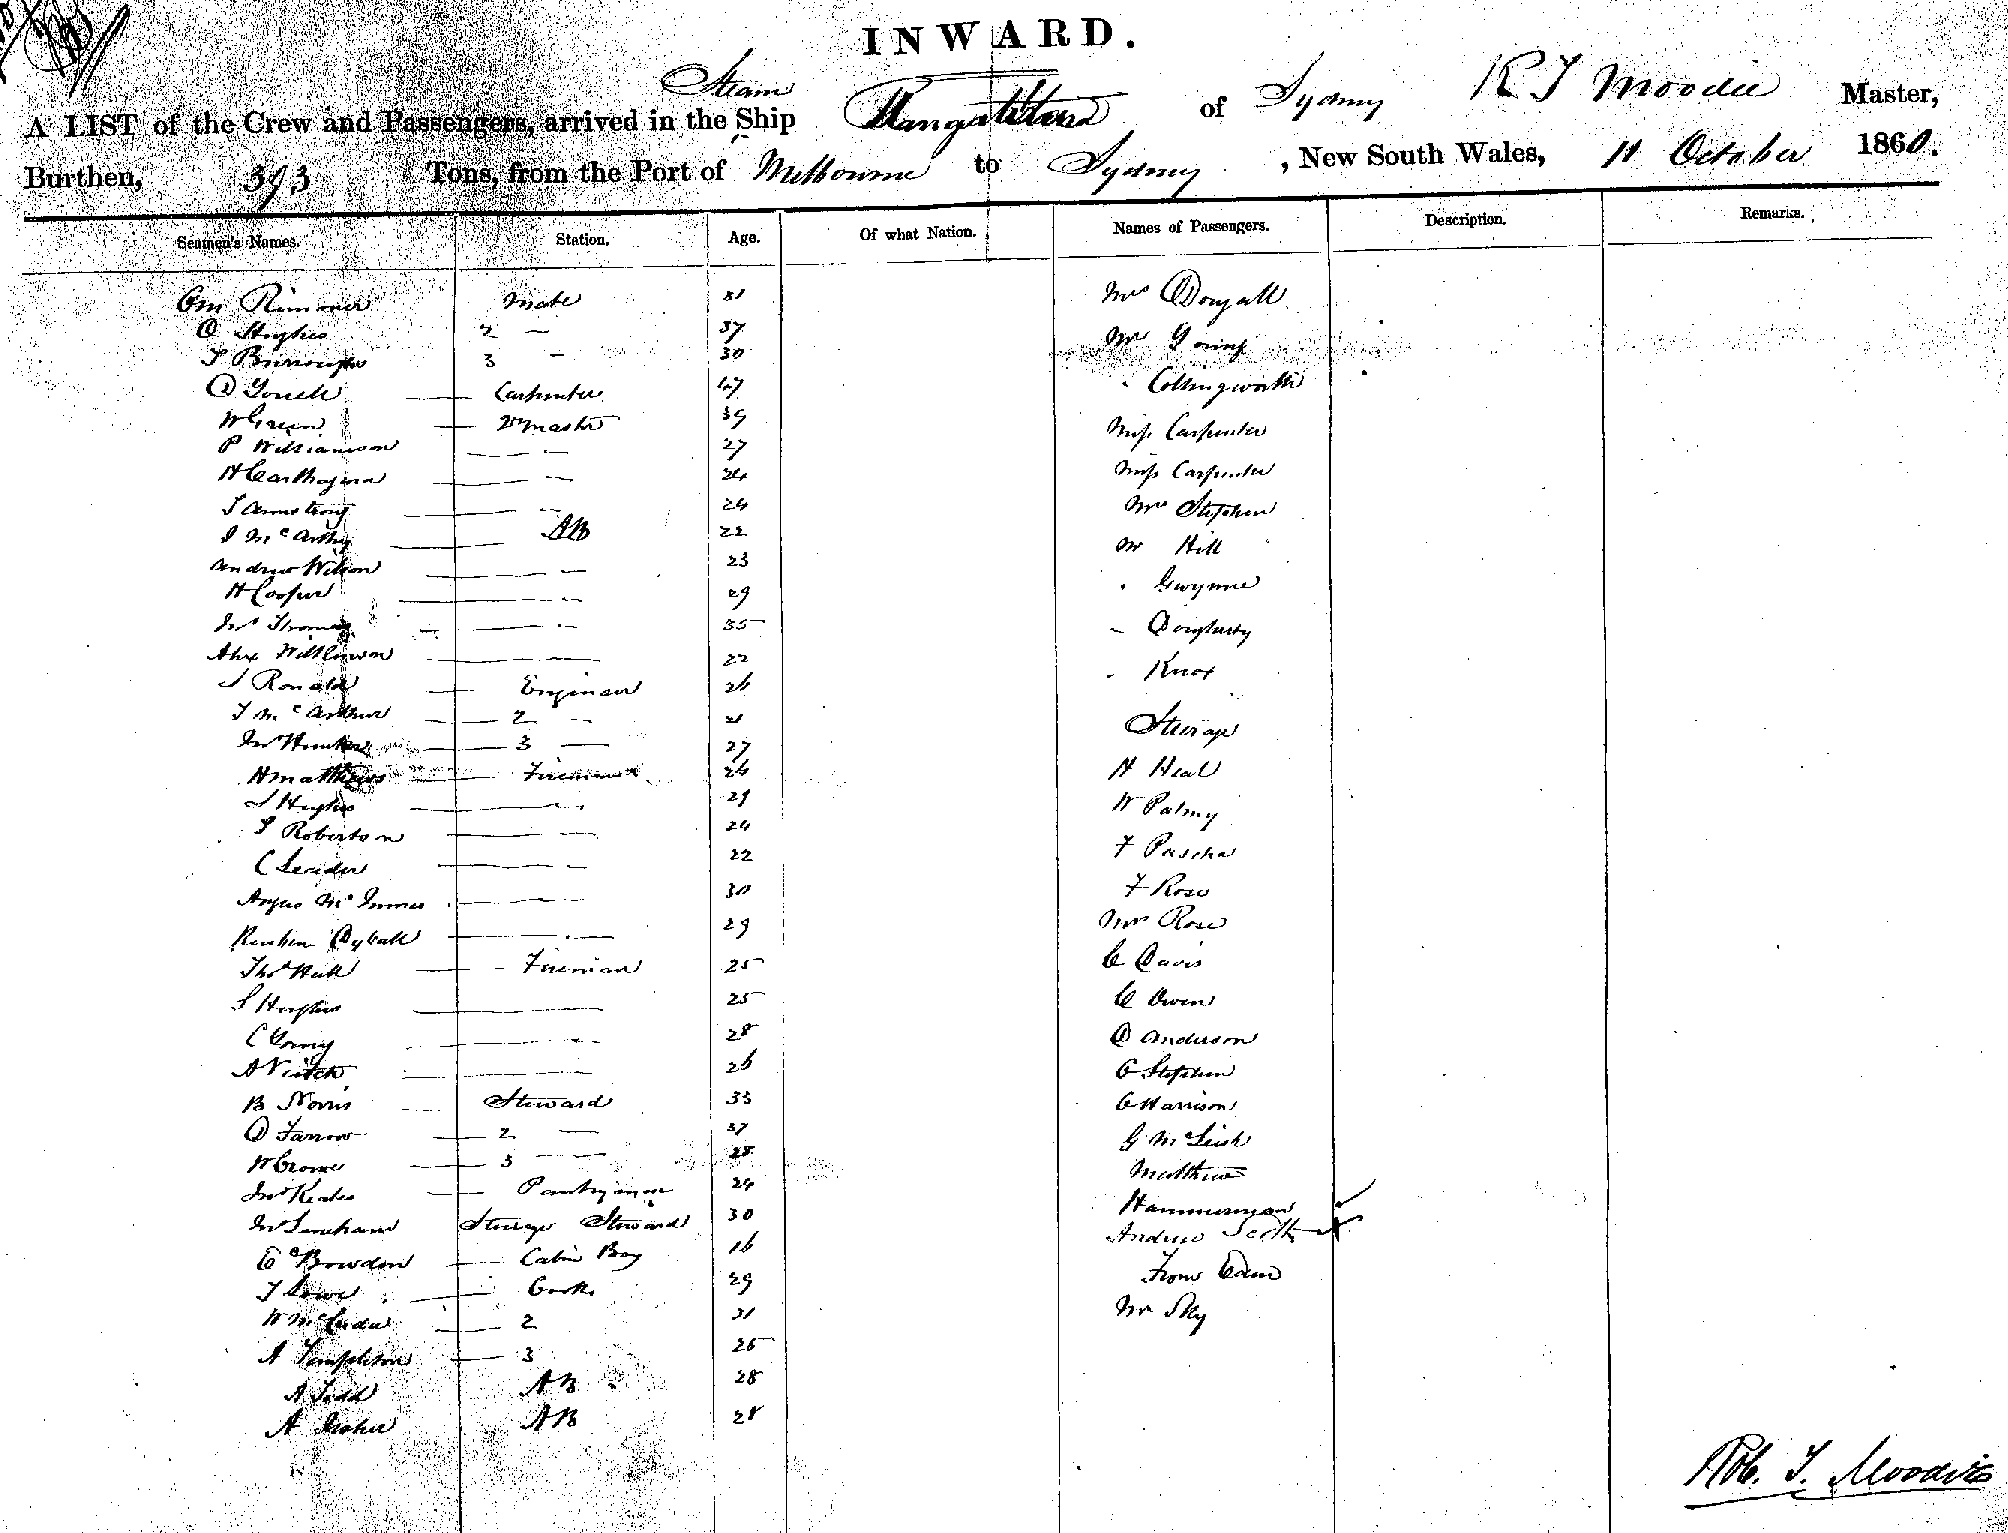 INWARD.
Steam
A LIST of the Crew and Passengers, arrived in the Ship Rangatira of Sydney R T Moodie Master,
Burthen, 393 Tons, from the Port of Melbourne to Sydney, New South Wales, 11 October 1860.
Seamen's Names. Station. Age. Of what Nation. Names of Passengers. Description. Remarks.
Rimmer Mate 31 Mrs Dougall
Hughes 2 — 37 Mr Goring
T Burroughs 3 — 30 " Collingworth
D Carpenter 47 Miss Carpenter
W Green master 39 Miss Carpenter
P Williamson 27 Mrs Stephen
H Carthagena 24 Mr Hill
J Armstrong 24 " Gwynne
J McArthy AB 22 " Dogherty
Andrew Wilson 23 " Knox
H Cooper 29 Steerage
Jno Thomas 35 H Heal
Alex Wilkinson 22 W Palmy
J Ronald Engineer 26 F Pascha
T McArthur 2 — 21 F Rose
Jno Hunter 3 — 27 Mrs Rose
H Matthews Fireman 26 C Davis
J Hughes 29 C Owen
J Robertson 24 D Anderson
C Leader 22 G Stephen
Angus McInnes 30 C Harrison
Reuben Dyball 29 G McLeish
Thos Hall Fireman 25 Matthew
S Hughes 25 Hammerman
C Young 28 Andrew Scott
A Veitch 26 From Eden
B Norris Steward 33 Mr Sky
D Farrow 2 — 37
W Crome 3 — 28
Jno Keates Pantryman 24
Jno Lenehan Steerage Steward 30
E Bowden Cabin Boy 16
T Lowe Cook 29
W 2 31
A Templeton 3 25
A Todd AB 28
A AB 28
Rob. T. Moodie